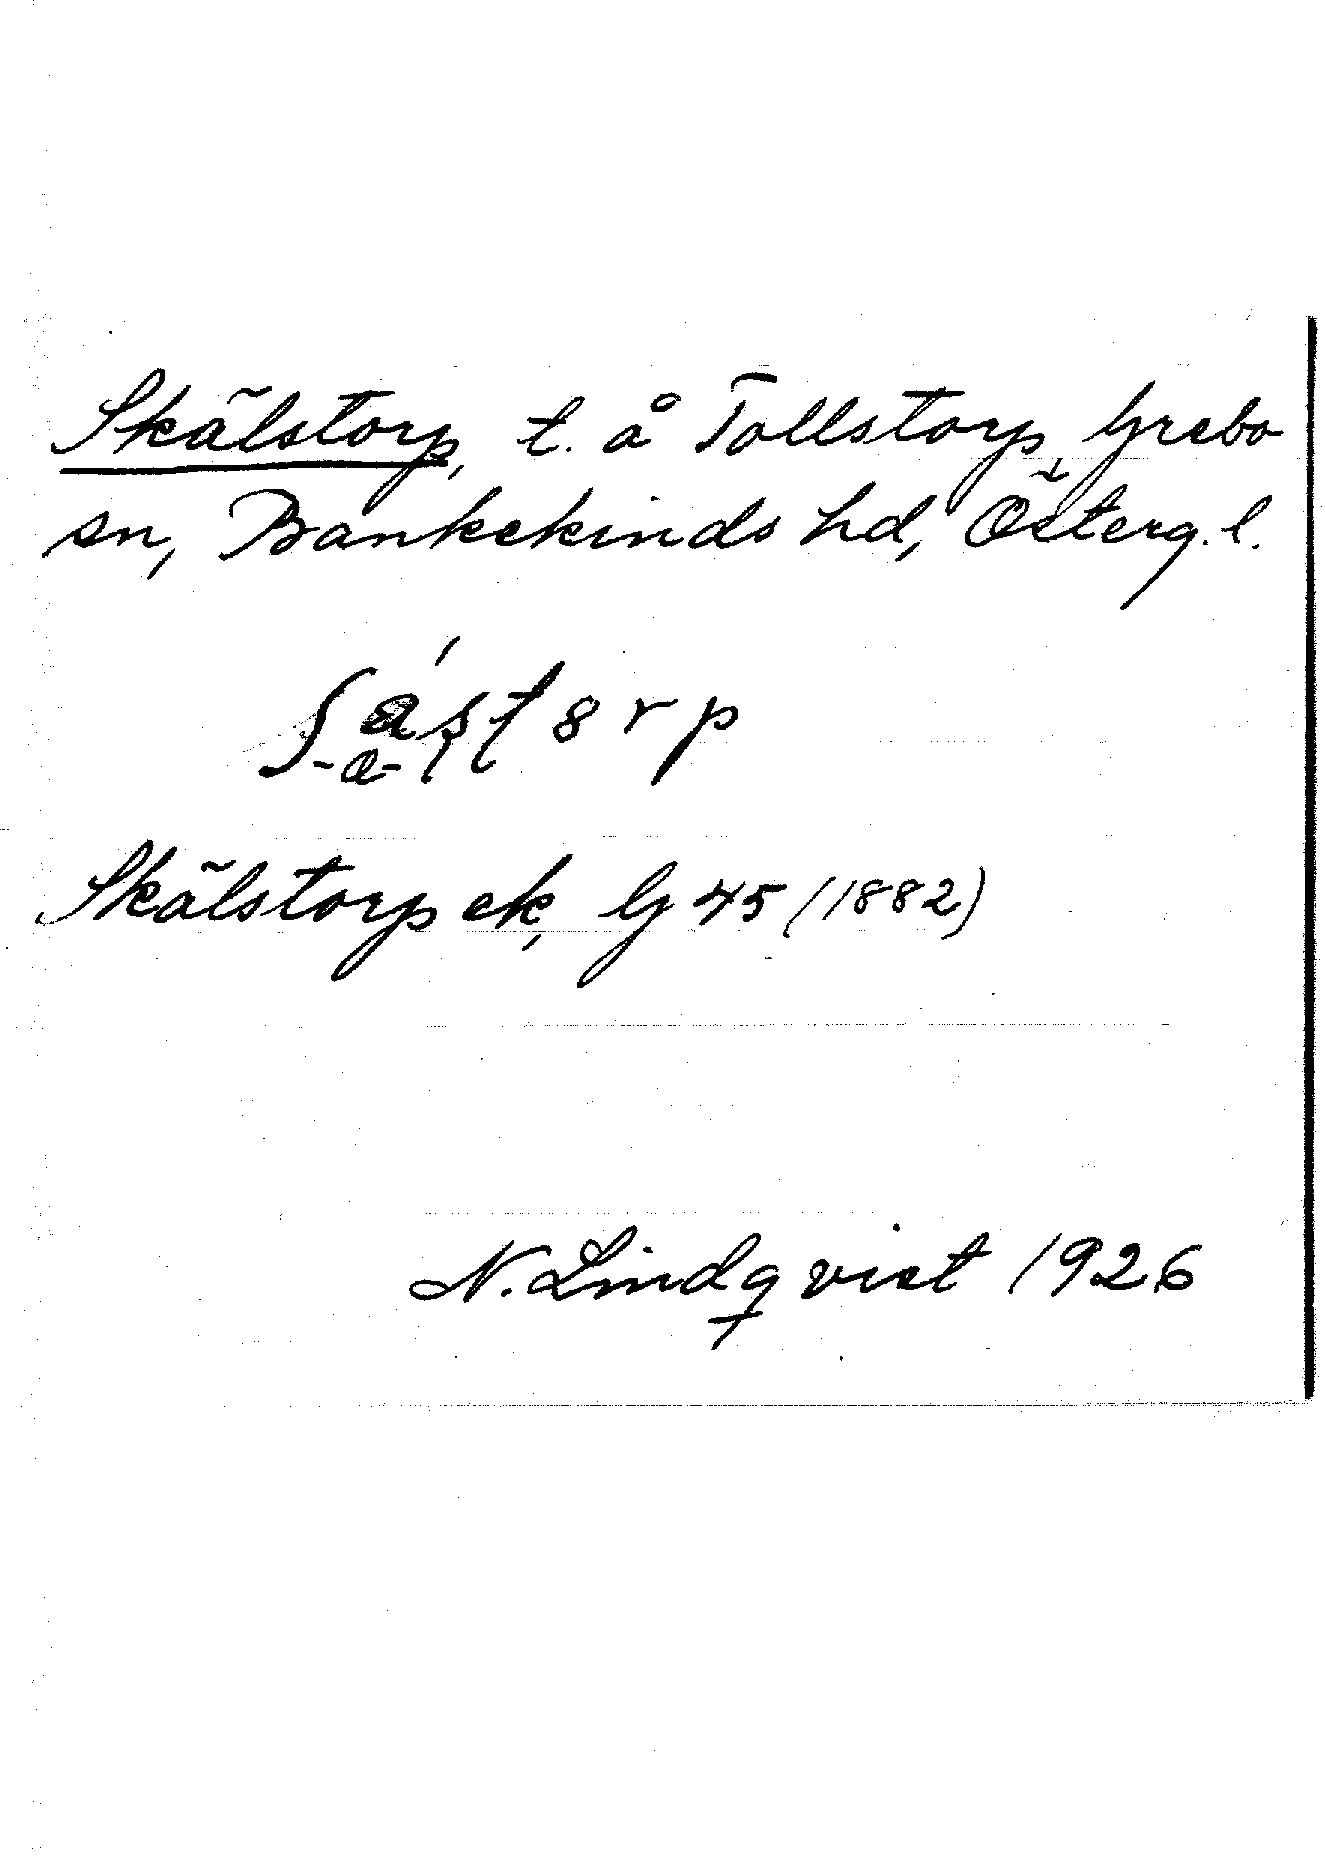 Skälstorp, t. å Tollstorp, Grebo
sn, Bankekinds hd, Österg. l.
Skälstorp ek, G 45 (1882)
N. Lindqvist 1926